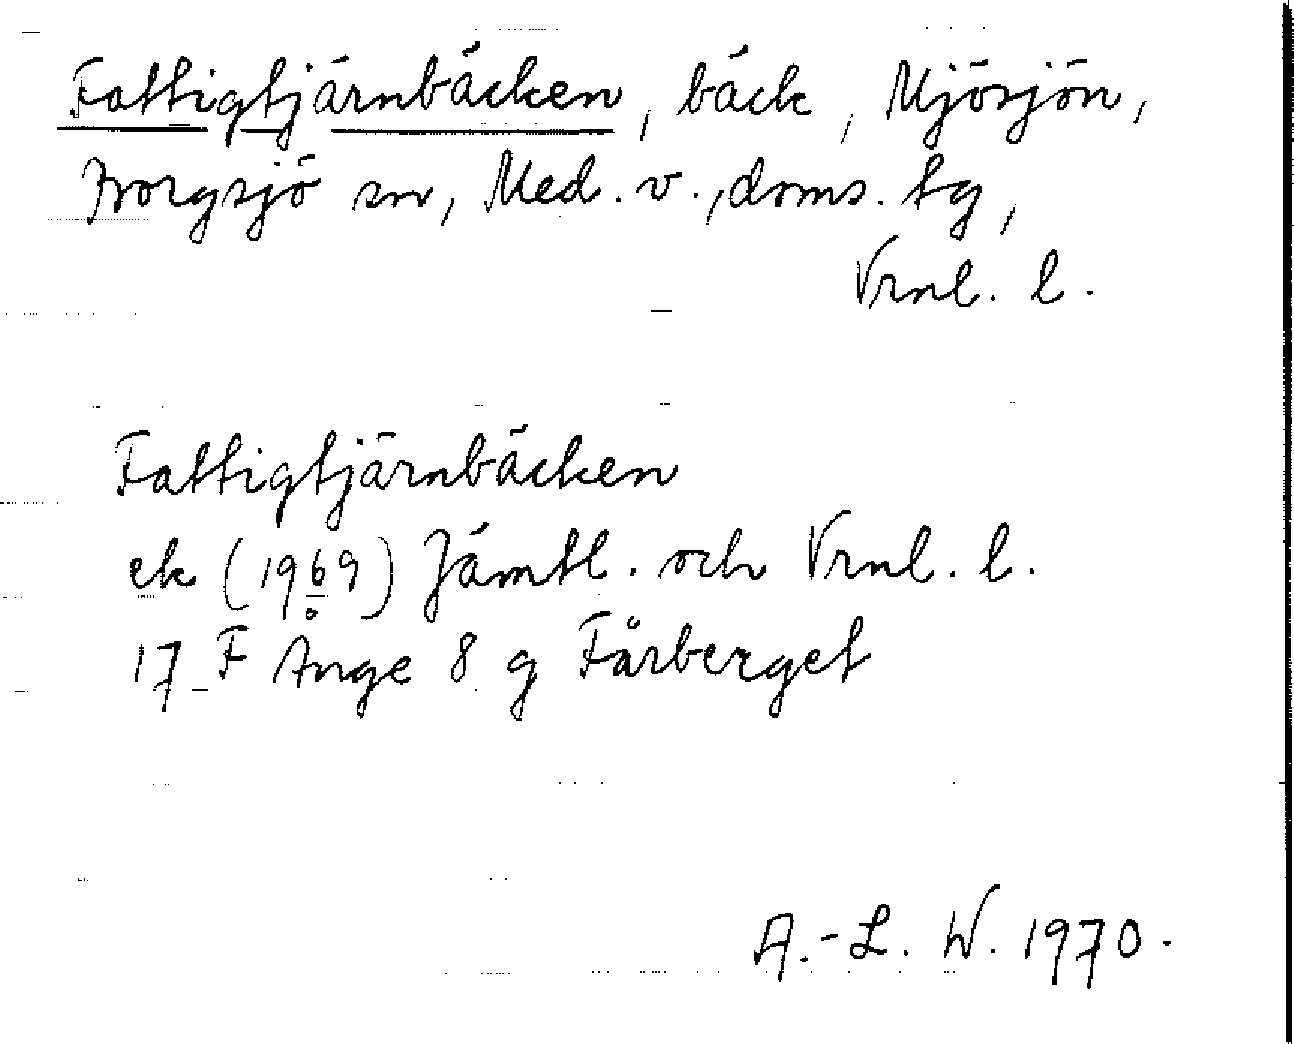 Fattigtjärnbäcken, bäck, Mjösjön,
Borgsjö sn, Med. v., doms. tg,
Vrnl. l.
Fattigtjärnbäcken
ek (1969) Jämtl. och Vrnl. l.
17 F Ånge 8 g Fårberget
A.-L. W. 1970.